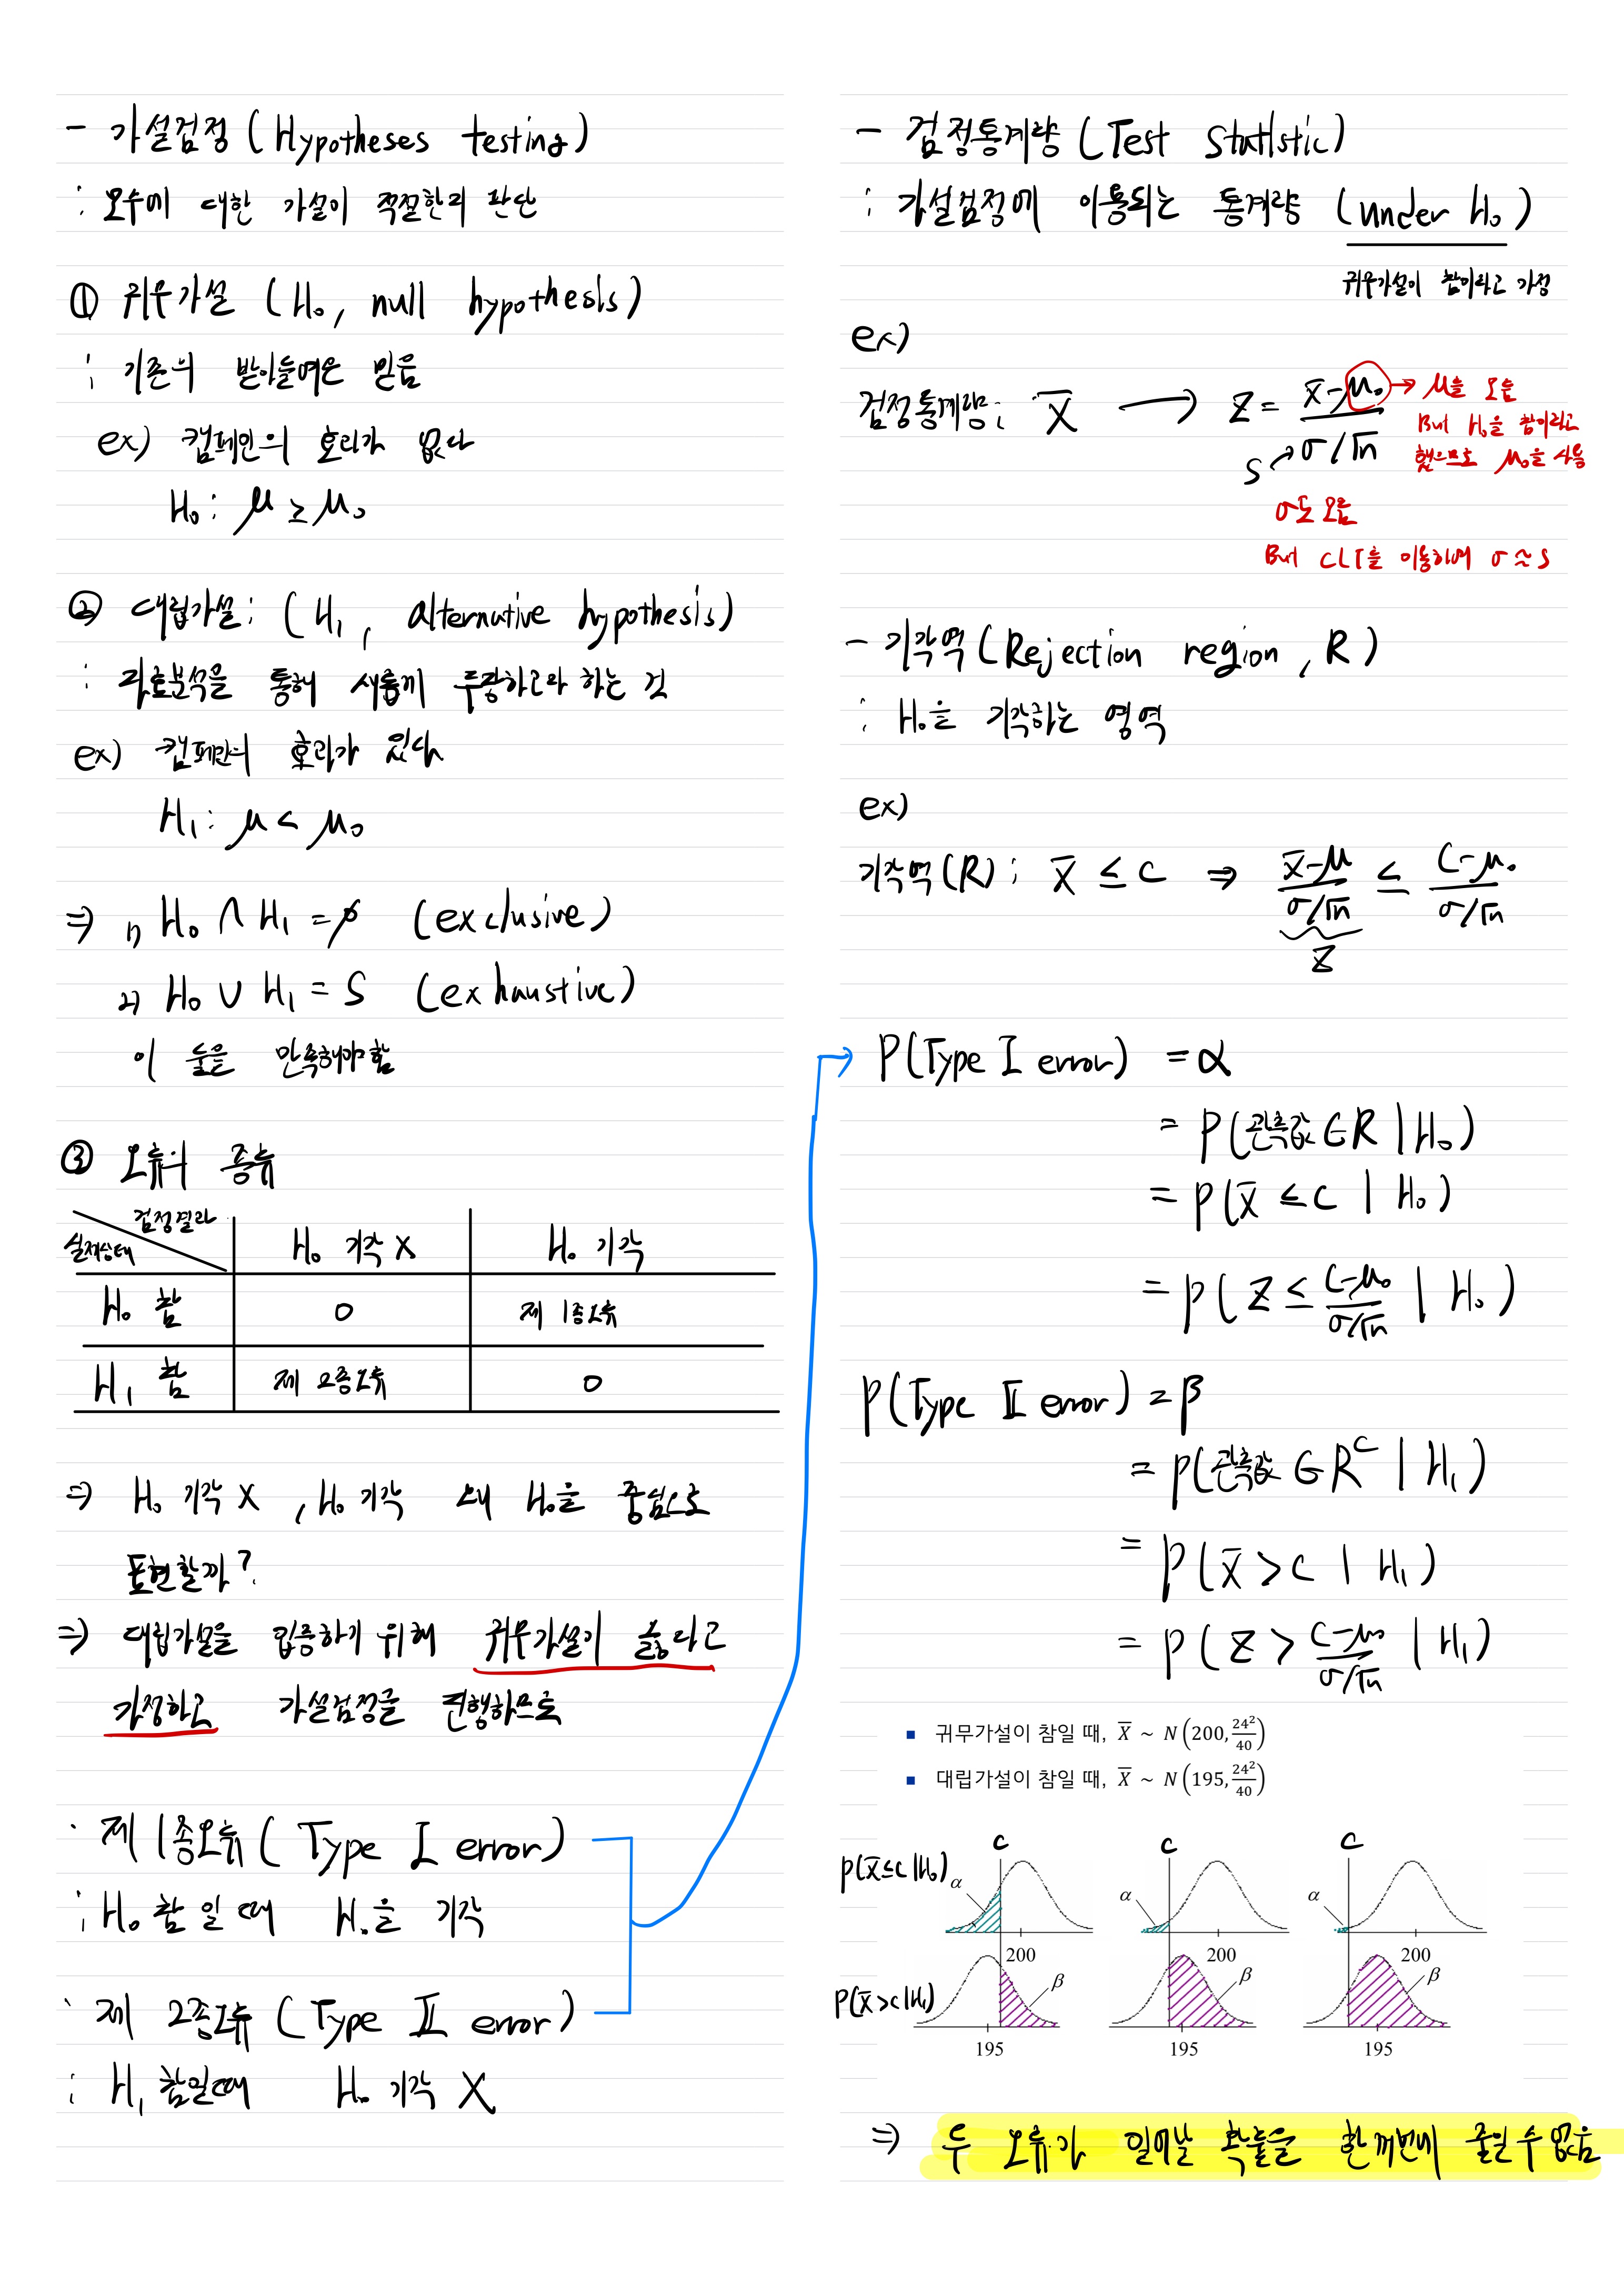 - 가설검정 (Hypotheses testing)
: 모수에 대한 가설이 적절한지 판단
① 귀무가설 (H₀, null hypothesis)
: 기존의 받아들여온 믿음
ex) 캠페인의 효과가 없다
H₀ : μ ≥ μ₀
② 대립가설 : (H₁, alternative hypothesis)
: 자료분석을 통해 새롭게 주장하고자 하는 것
ex) 캠페인의 효과가 있다
H₁ : μ < μ₀
⇒ 1) H₀ ∩ H₁ = ∅ (exclusive)
2) H₀ ∪ H₁ = S (exhaustive)
이 둘을 만족해야함
③ 오류의 종류
검정결과
실제상태 H₀ 기각 X H₀ 기각
H₀ 참 O 제 1종오류
H₁ 참 제 2종오류 O
⇒ H₀ 기각 X , H₀ 기각 왜 H₀을 중심으로
표현할까?
⇒ 대립가설을 입증하기 위해 귀무가설이 옳다고
가정하고 가설검정을 진행하므로
· 제 1종오류 (Type I error)
: H₀ 참 일 때 H₀을 기각
· 제 2종오류 (Type II error)
: H₁ 참일때 H₀ 기각 X
- 검정통계량 (Test Statistic)
: 가설검정에 이용되는 통계량 (under H₀)
귀무가설이 참이라고 가정
ex)
검정통계량 : X̄ → Z = (X̄-μ₀)/(σ/√n) → μ를 모름
But H₀을 참이라고
했으므로 μ₀을 사용
S
σ도 모름
But CLT를 이용하여 σ ≈ S
- 기각역 (Rejection region, R)
: H₀을 기각하는 영역
ex)
기각역(R) : X̄ ≤ C ⇒ (X̄-μ)/(σ/√n) ≤ (C-μ₀)/(σ/√n)
Z
P(Type I error) = α
= P(관측값 ∈ R | H₀)
= P(X̄ ≤ C | H₀)
= P(Z ≤ (C-μ₀)/(σ/√n) | H₀)
P(Type II error) = β
= P(관측값 ∈ Rᶜ | H₁)
= P(X̄ > C | H₁)
= P(Z > (C-μ₀)/(σ/√n) | H₁)
▪ 귀무가설이 참일 때, X̄ ~ N(200, 24²/40)
▪ 대립가설이 참일 때, X̄ ~ N(195, 24²/40)
C C C
P(X̄≤C|H₀) α α α
200 200 200
P(X̄>C|H₁) β β β
195 195 195
⇒ 두 오류가 일어날 확률을 한꺼번에 줄일 수 없음